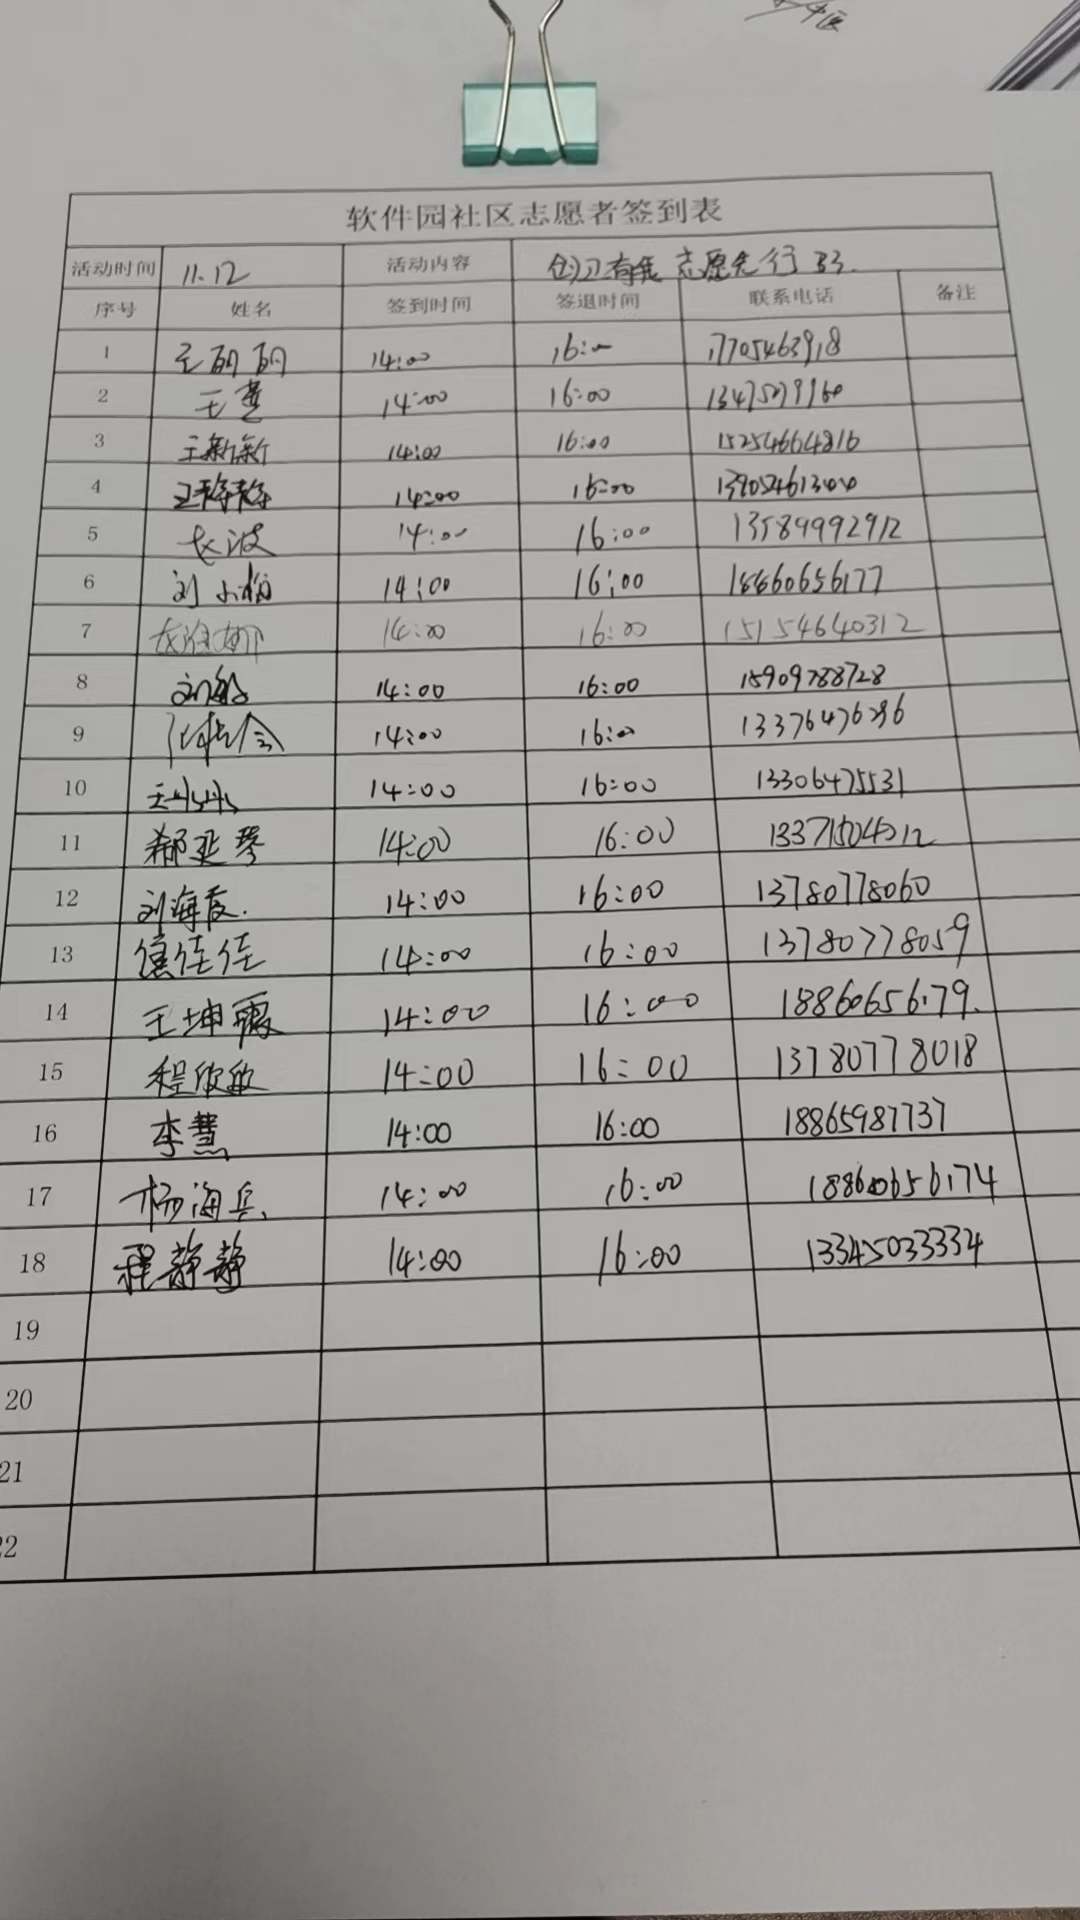 软件园社区志愿者签到表
活动时间 11.12 活动内容 创卫有我 志愿先行
序号 姓名 签到时间 签退时间 联系电话 备注
1 14:00 16:00 17705463918
2 王 14:00 16:00
3 王新新 14:00 16:00 15254664816
4 王静静 14:00 16:00
5 波 14:00 16:00 13589992912
6 刘 14:00 16:00 18860656177
7 14:00 16:00 15154640312
8 刘 14:00 16:00 15909788728
9 14:00 16:00
10 王 14:00 16:00 13306475531
11 郝延琴 14:00 16:00
12 刘海霞. 14:00 16:00 13780778060
13 佳佳 14:00 16:00 13780778059
14 王坤霞 14:00 16:00 18860656179.
15 程欣敏 14:00 16:00 13780778018
16 李慧 14:00 16:00 18865987737
17 杨海兵. 14:00 16:00 18860656174
18 程静静 14:00 16:00 13345033334
19
20
21
22